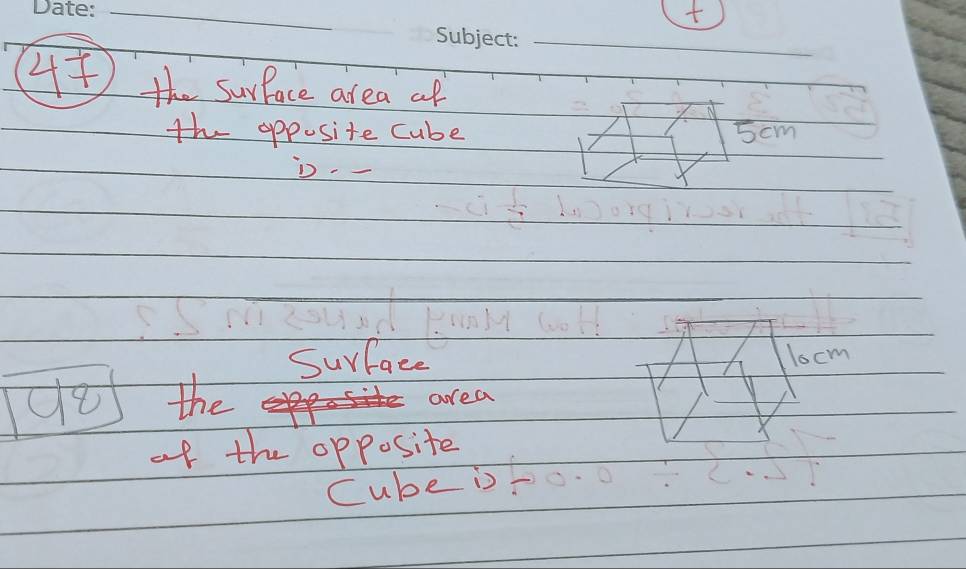 Date:
Subject:
+
47 the surface area of
the opposite Cube
is --
5cm
Surface
48 the opposite area
of the opposite
Cube is -
10cm